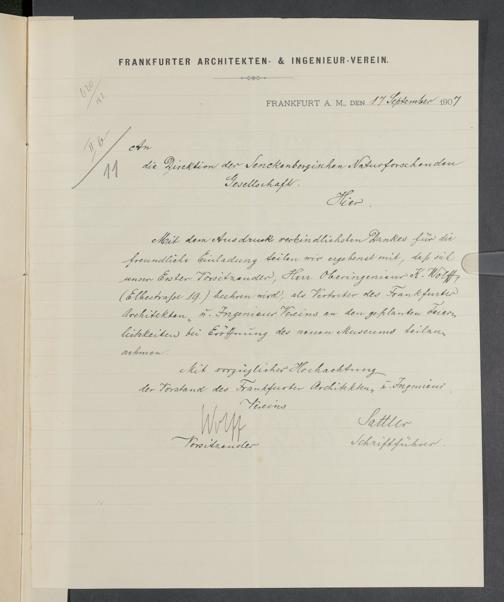 FRANKFURTER ARCHITEKTEN- & INGENIEUR-VEREIN.
FRANKFURT A. M., DEN 17 September 1907
11
An
die Direktion der Senckenbergischen Naturforschenden
Gesellschaft.
Hier.
Mit dem Ausdruck verbindlichsten Dankes für die
freundliche Einladung teilen wir ergebenst mit, daß sich
unser Erster Vorsitzender, Herr Oberingenieur K. Wolff,
(Elbestraße 19.) beehren wird, als Vertreter des Frankfurter
Architekten- u. Ingenieur Vereins an den geplanten Feier-
lichkeiten bei Eröffnung des neuen Museums teilzu-
nehmen.
Mit vorzüglicher Hochachtung
der Vorstand des Frankfurter Architekten- u. Ingenieur
Vereins
Wolff Sattler
Vorsitzender Schriftführer.